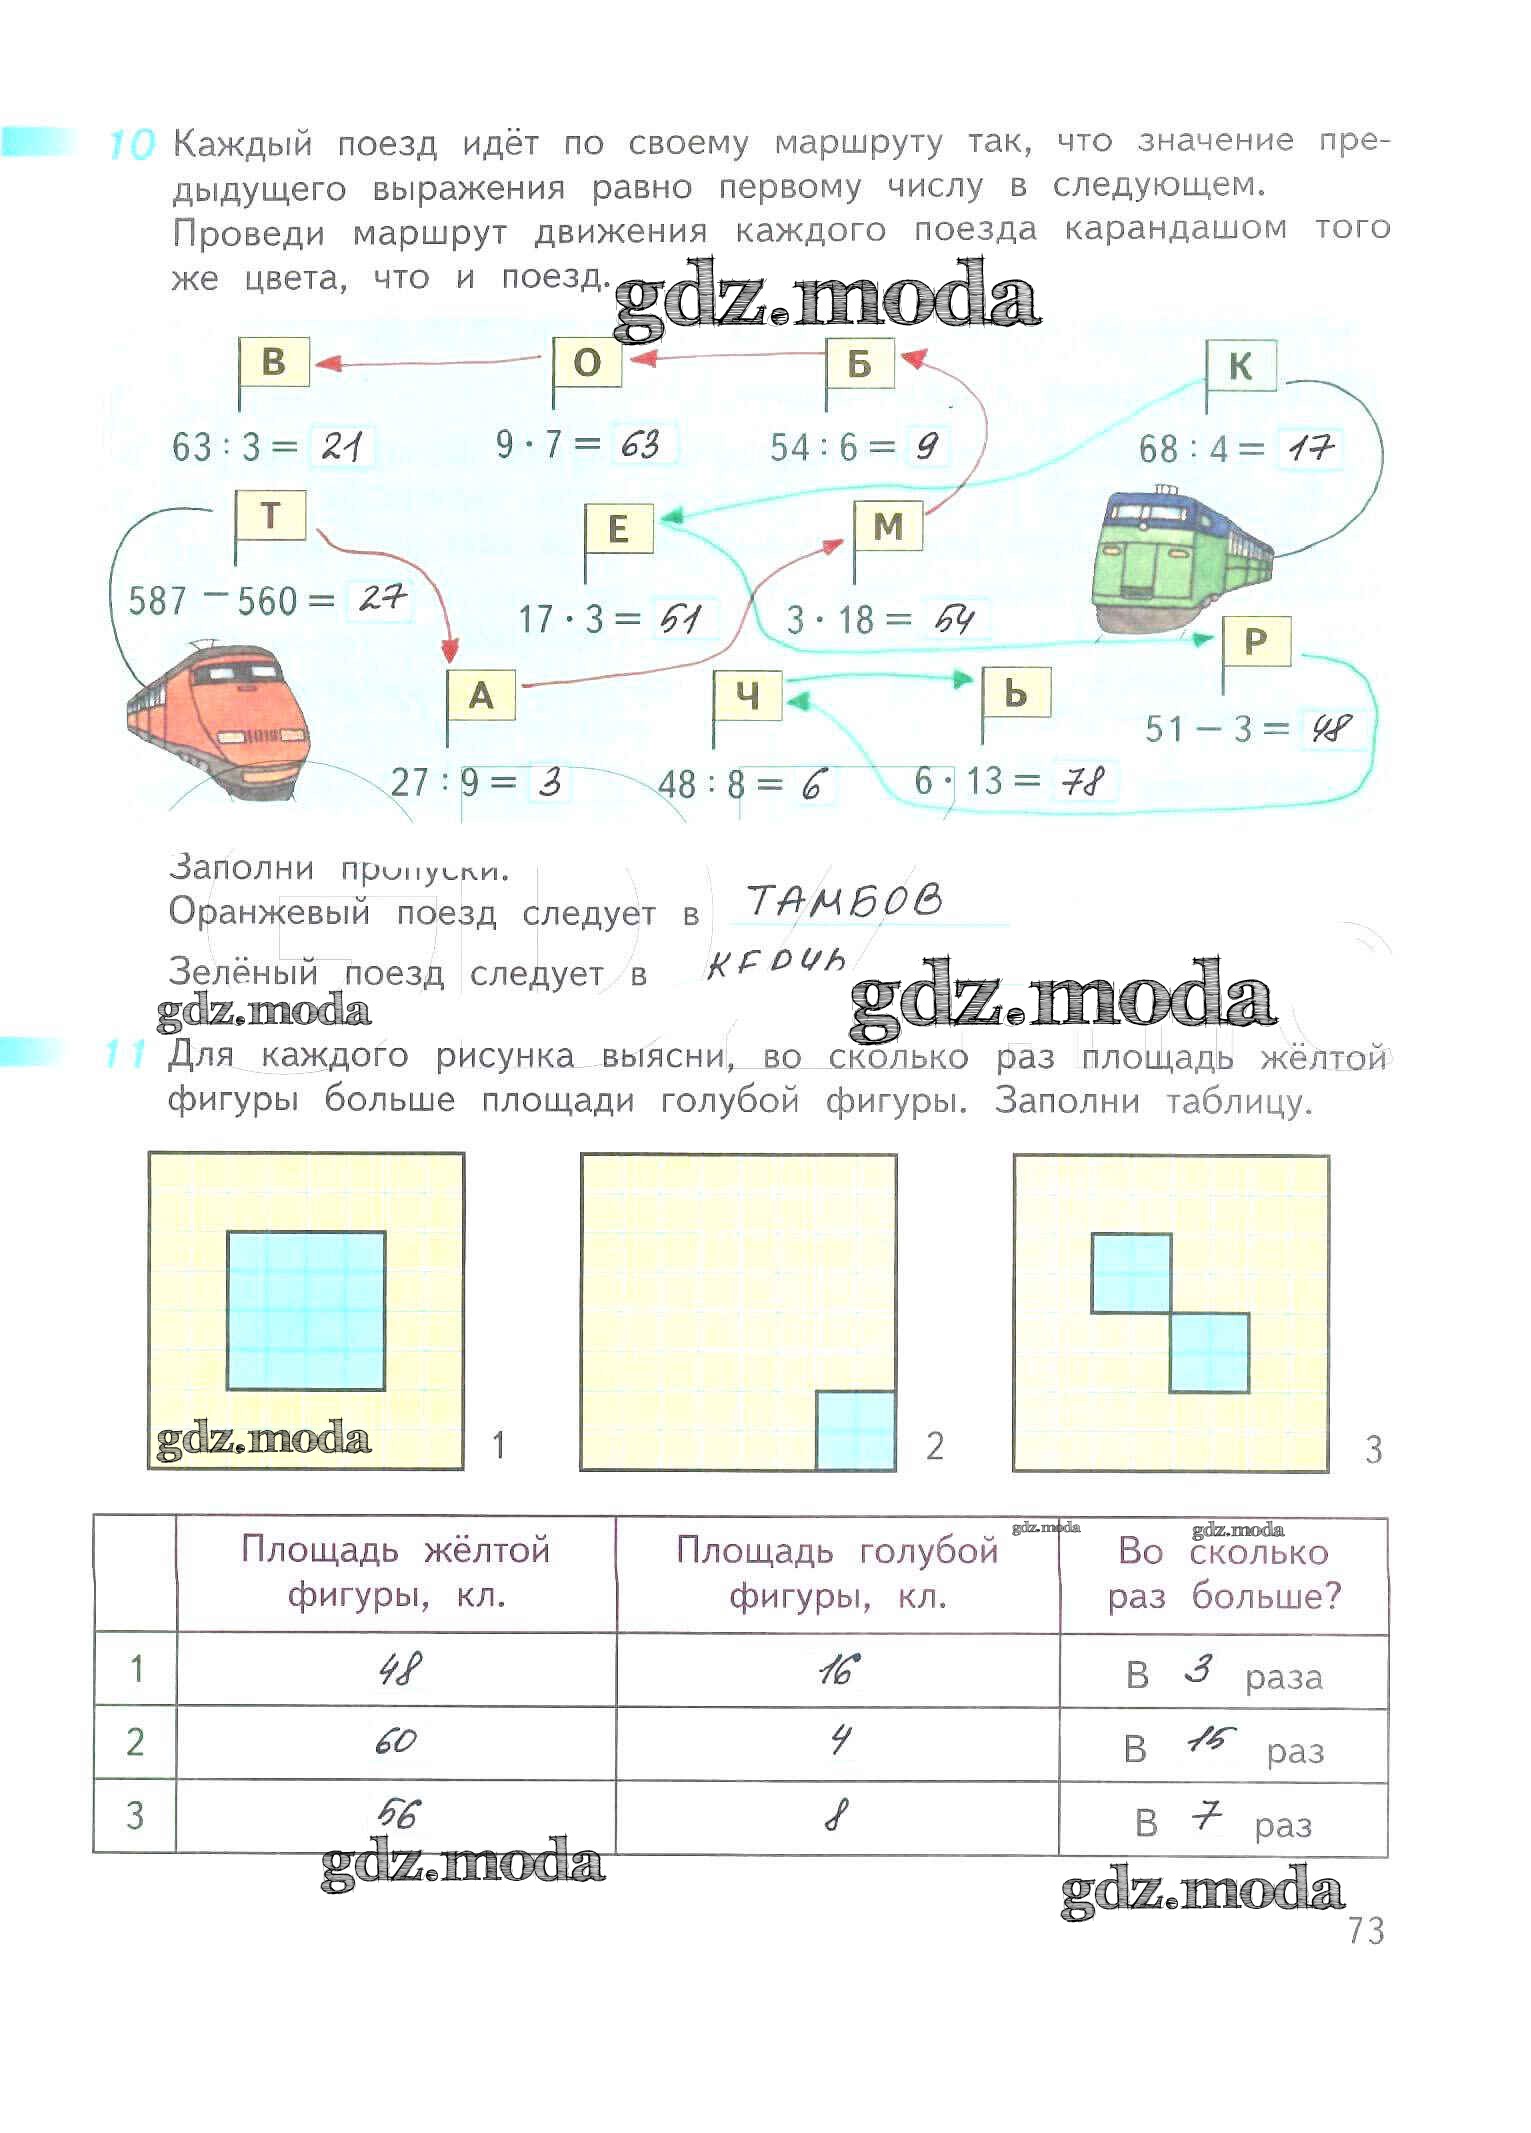 10 Каждый поезд идёт по своему маршруту так, что значение пре-
дыдущего выражения равно первому числу в следующем.
Проведи маршрут движения каждого поезда карандашом того
же цвета, что и поезд.
gdz.moda
В О Б К
63 : 3 = 21 9 · 7 = 63 54 : 6 = 9 68 : 4 = 17
Т Е М
587 − 560 = 27 17 · 3 = 51 3 · 18 = 54
Р
51 − 3 = 48
А Ч Ь
27 : 9 = 3 48 : 8 = 6 6 · 13 = 78
Заполни пропуски.
Оранжевый поезд следует в ТАМБОВ
Зелёный поезд следует в
gdz.moda gdz.moda
11 Для каждого рисунка выясни, во сколько раз площадь жёлтой
фигуры больше площади голубой фигуры. Заполни таблицу.
gdz.moda 1 2 3
gdz.moda gdz.moda
Площадь жёлтой фигуры, кл. Площадь голубой фигуры, кл. Во сколько раз больше?
1 48 16 В 3 раза
2 60 4 В 15 раз
3 56 8 В 7 раз
gdz.moda gdz.moda
73